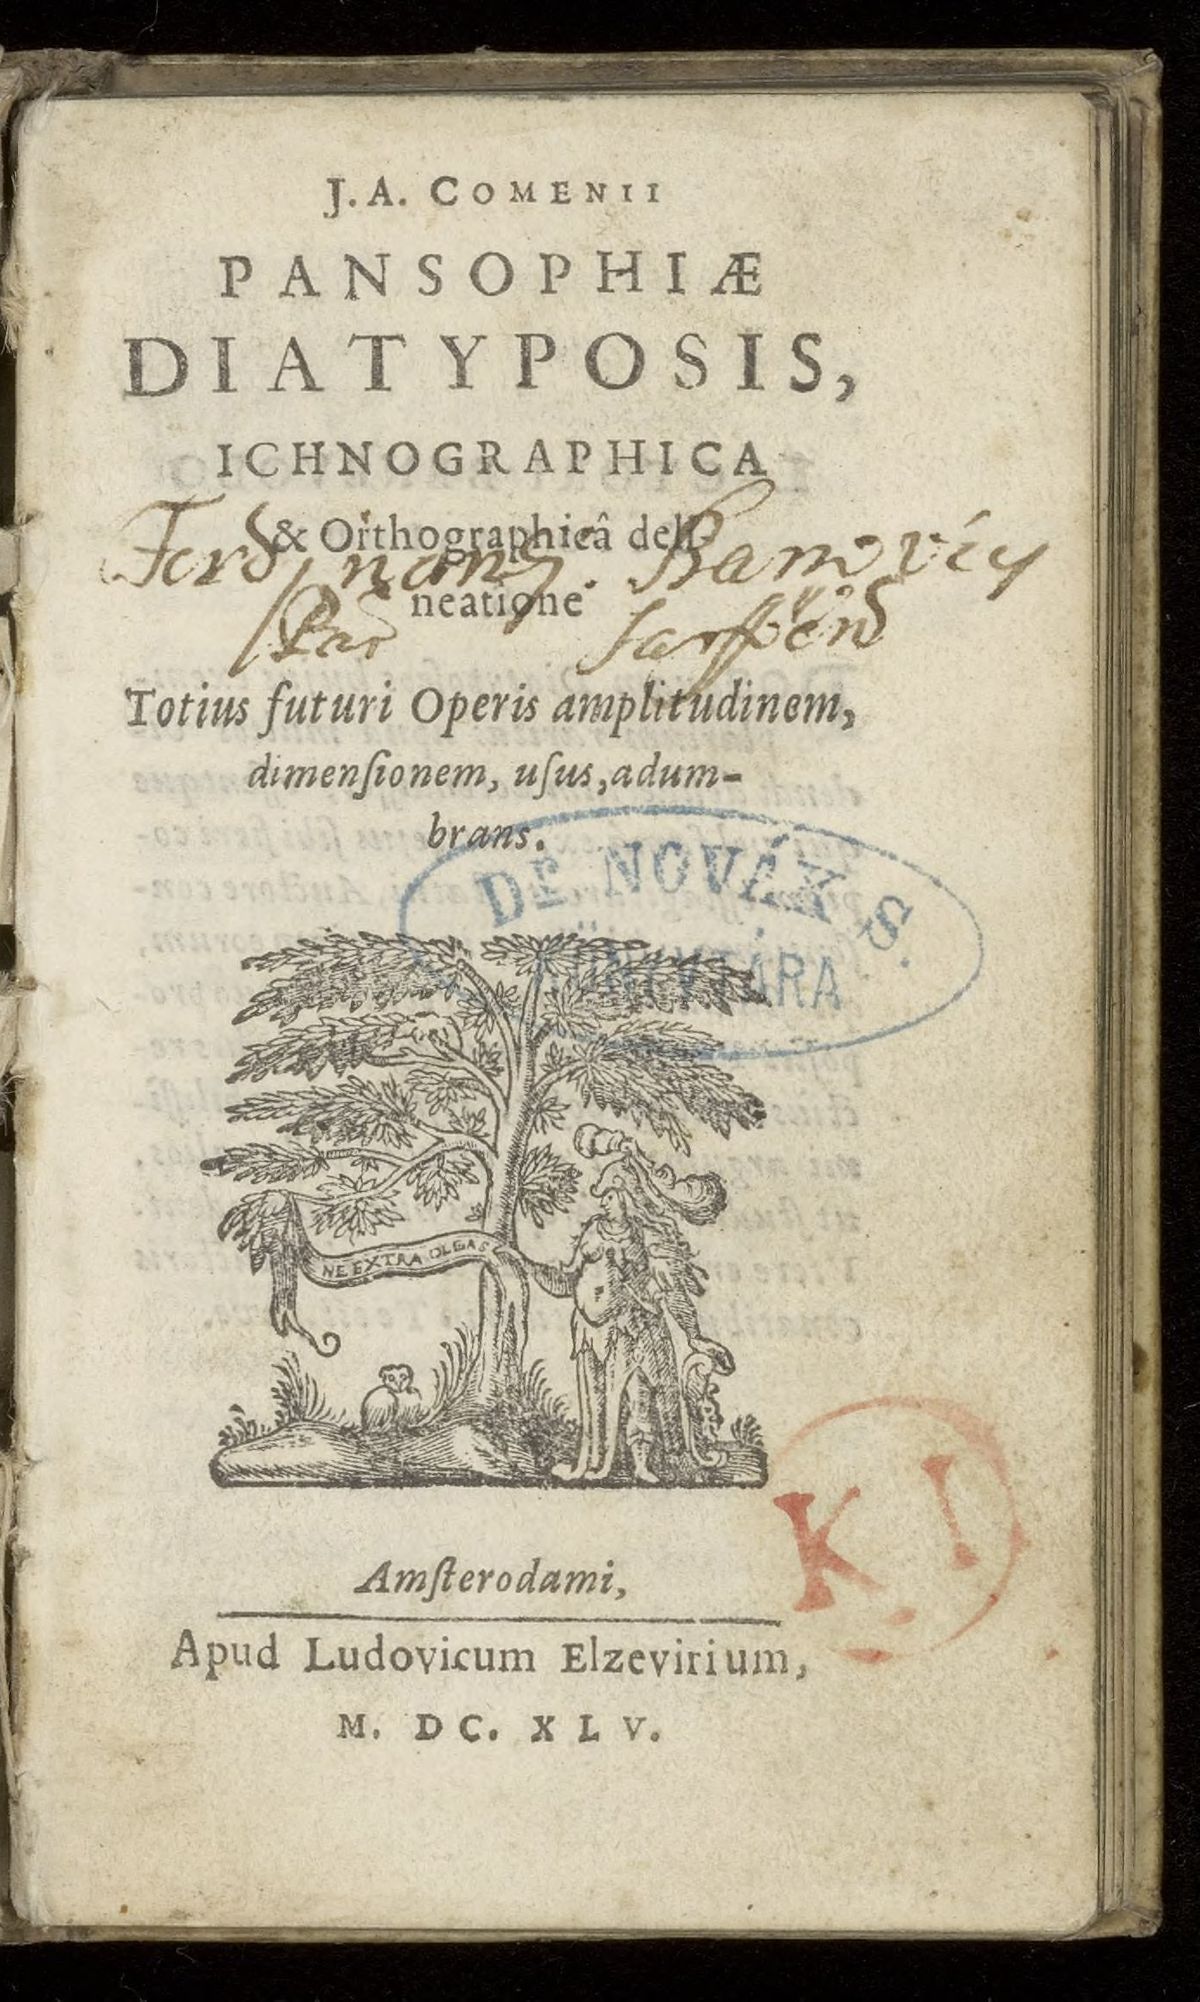 J. A. COMENII
PANSOPHIÆ
DIATYPOSIS,
ICHNOGRAPHICA
& Orthographicâ deli-
neatione
Totius futuri Operis amplitudinem,
dimenſionem, uſus, adum-
brans.
DR. NOVÁK S.
KÖNYVTÁRA
NE EXTRA OLEAS
K I
Amſterodami,
Apud Ludovicum Elzevirium,
M. DC. XLV.